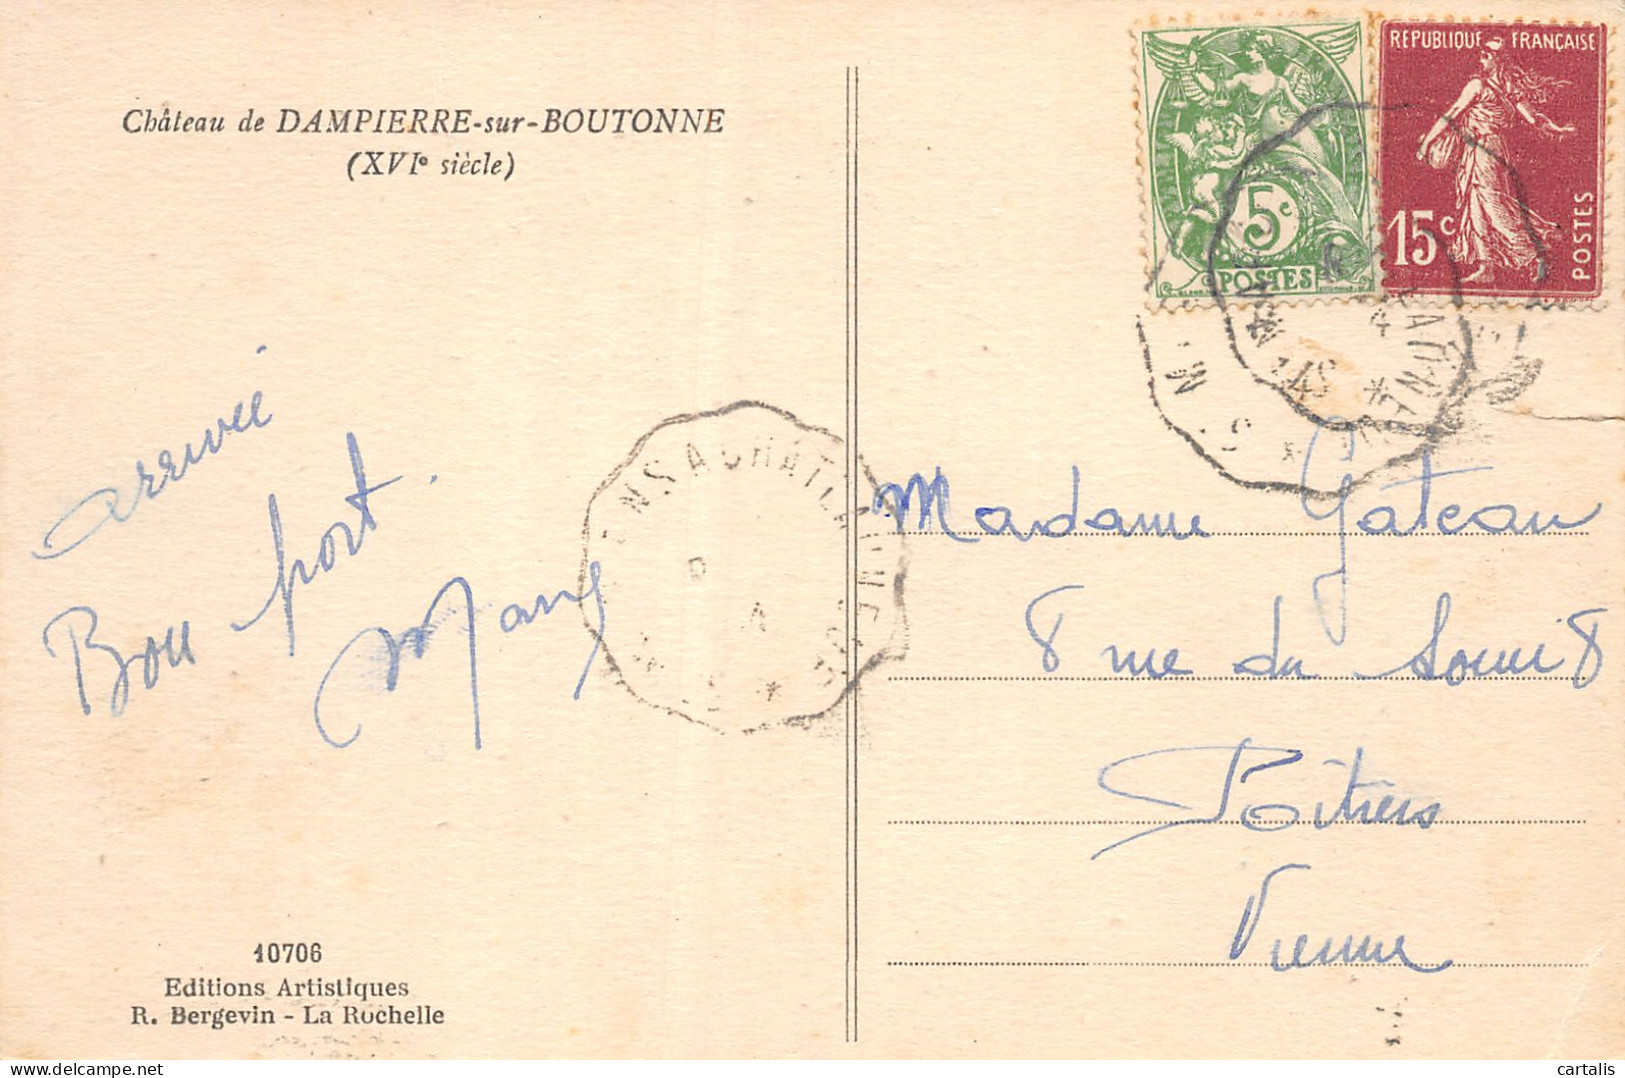 Château de DAMPIERRE-sur-BOUTONNE
(XVIᵉ siècle)
arrivée
Bon port.
10706
Editions Artistiques
R. Bergevin - La Rochelle
5c
POSTES
REPUBLIQUE FRANÇAISE
15c
POSTES
Madame Gateau
8 rue du
Poitiers
Vienne
delcampe.net
cartalis